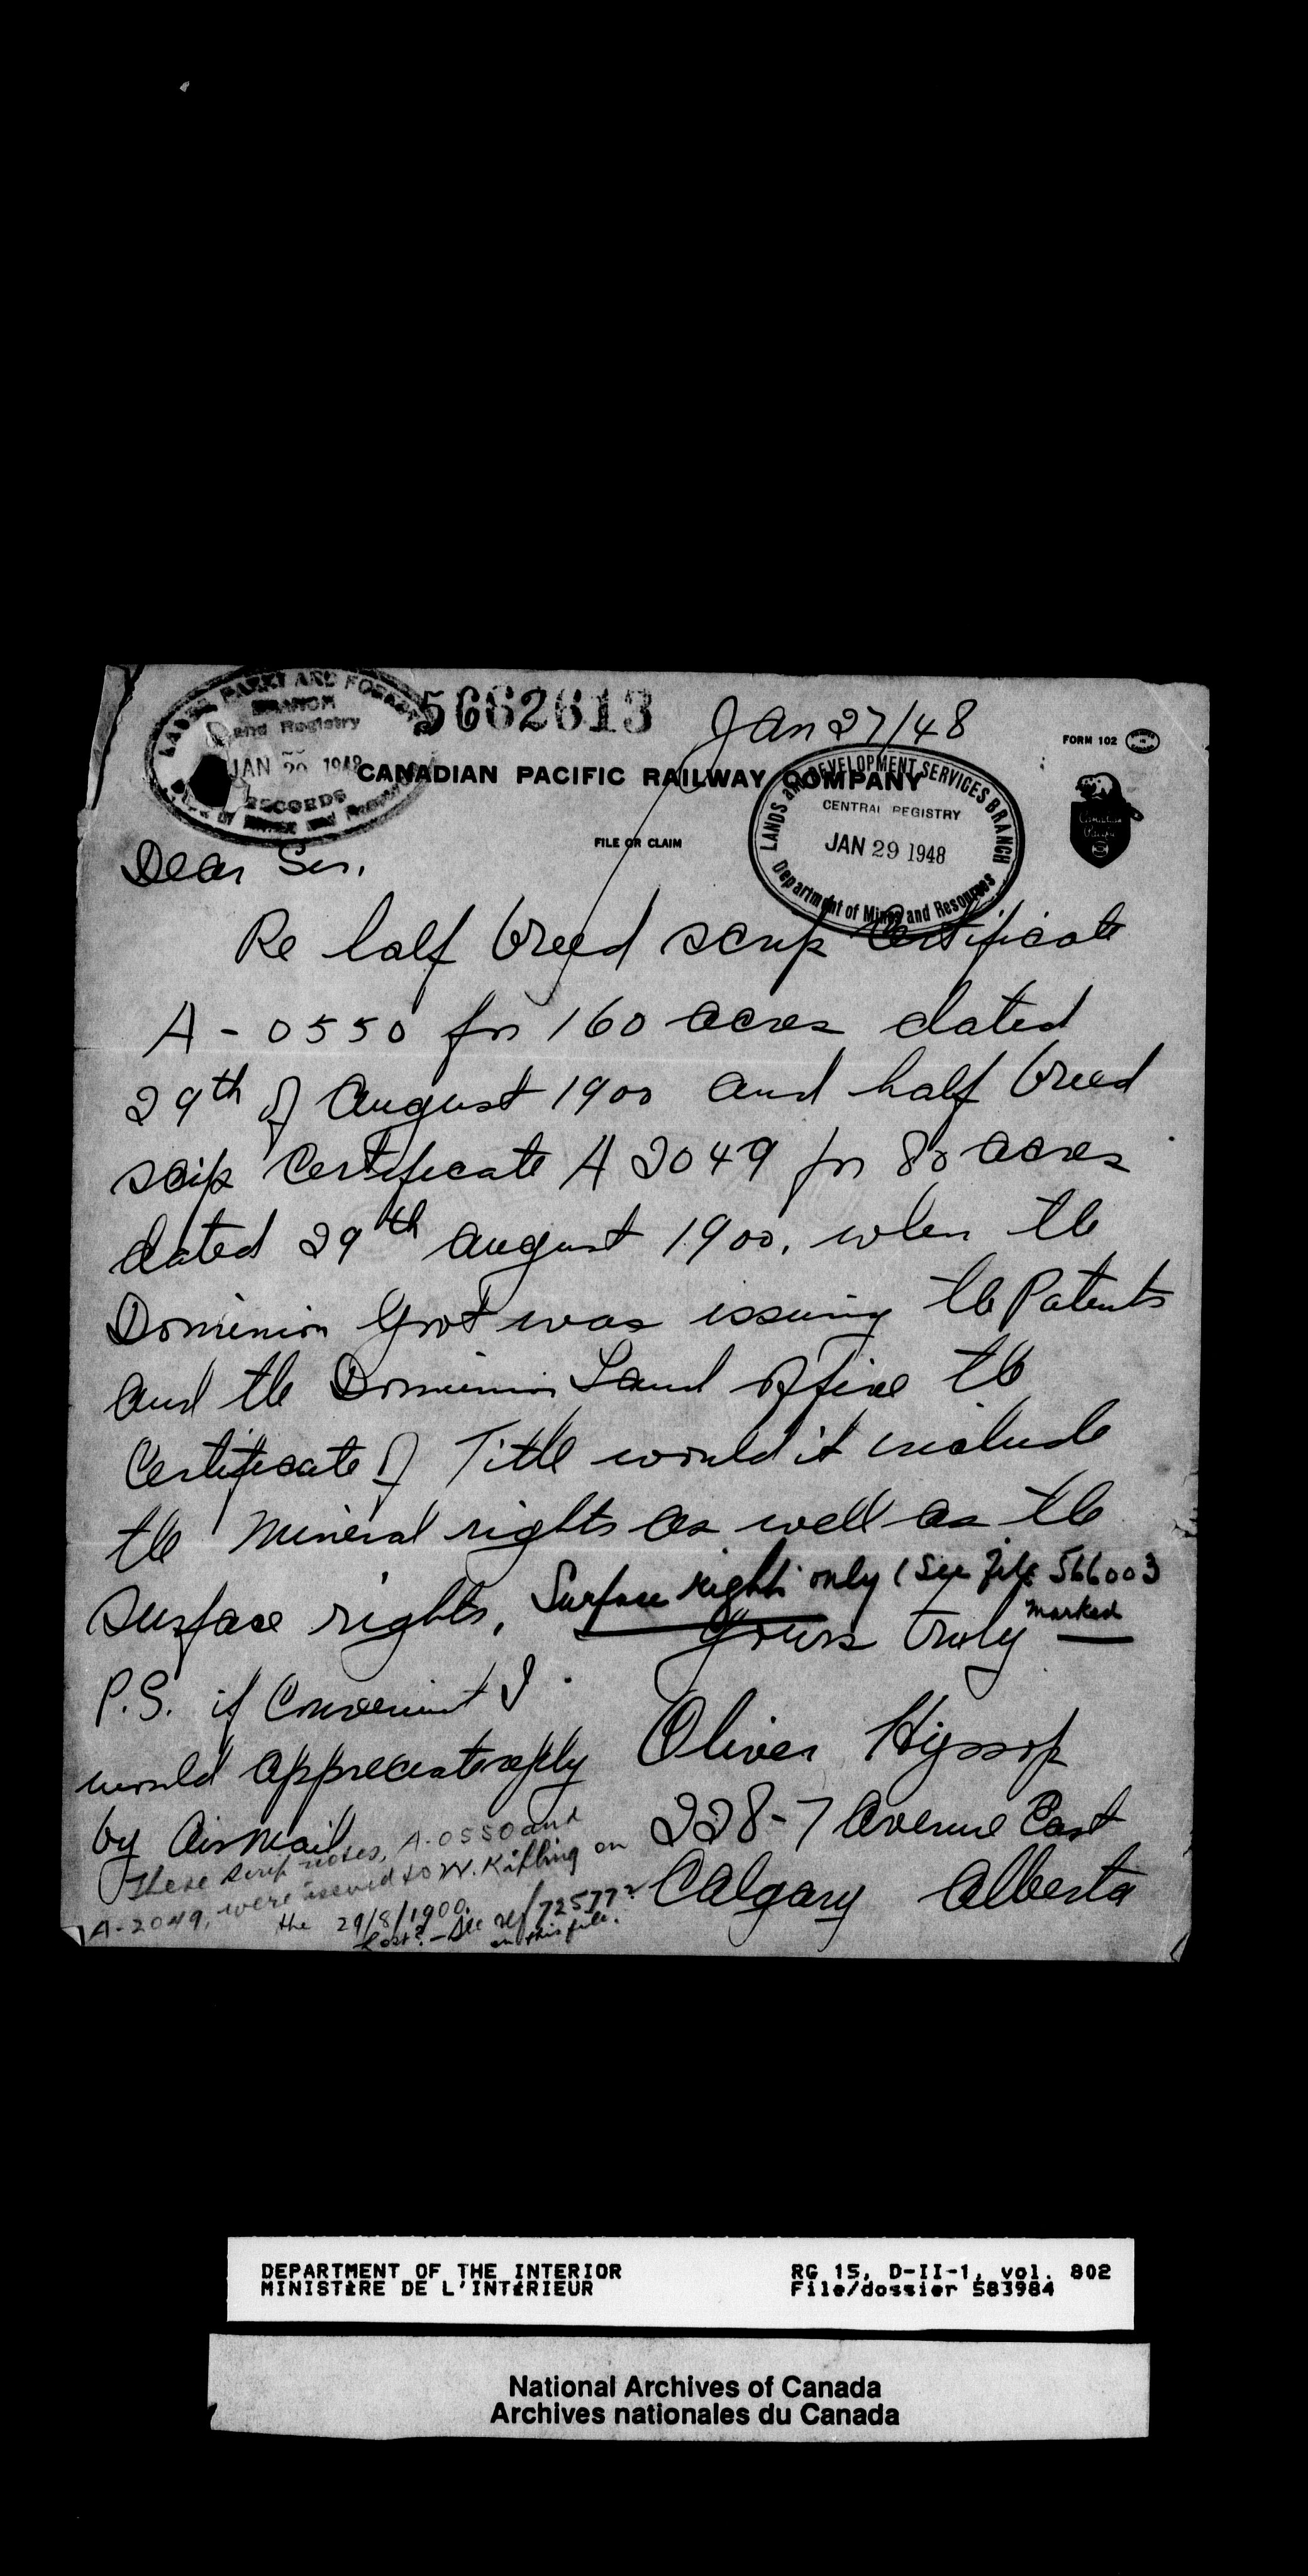 LANDS, PARKS AND FOREST
BRANCH
Land Registry
JAN 29 1948
RECORDS
5662613
Jan 27/48
FORM 102
CANADIAN PACIFIC RAILWAY COMPANY
Canadian
Pacific
FILE OR CLAIM
LANDS and DEVELOPMENT SERVICES BRANCH
CENTRAL REGISTRY
JAN 29 1948
Department of Mines and Resources
Dear Sir,
Re half breed scrip Certificate
A - 0550 for 160 acres dated
29th of August 1900 and half breed
scrip Certificate A 2049 for 80 acres
dated 29th August 1900. when the
Dominion Govt was issuing the Patents
and the Dominion Land Office the
Certificate of Title would it include
the Mineral rights as well as the
Surface rights.
Surface rights only (See file 566003
marked
Yours truly
P.S. if Convenient I
would appreciate reply
by Airmail
Oliver Hyssop
228-7 Avenue East
Calgary Alberta
These scrip notes, A-0550 and
A-2049, were issued to W. Kipling on
the 29/8/1900.
Lost? - See ref 725777?
on this file.
DEPARTMENT OF THE INTERIOR
MINISTÈRE DE L'INTÉRIEUR
RG 15, D-II-1, vol. 802
File/dossier 583984
National Archives of Canada
Archives nationales du Canada